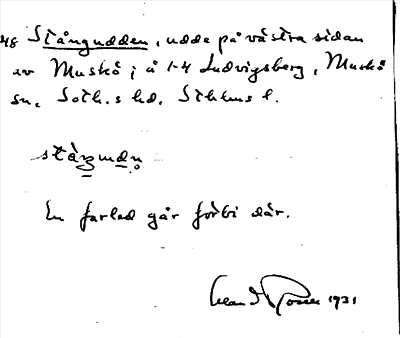 48 Stångudden, udde på västra sidan
av Muskö; å 1⁄4 Ludvigsberg, Muskö
sn. Soth.s hd. Sthlms l.
stàŋmdṇ
En farled går förbi där.
1931